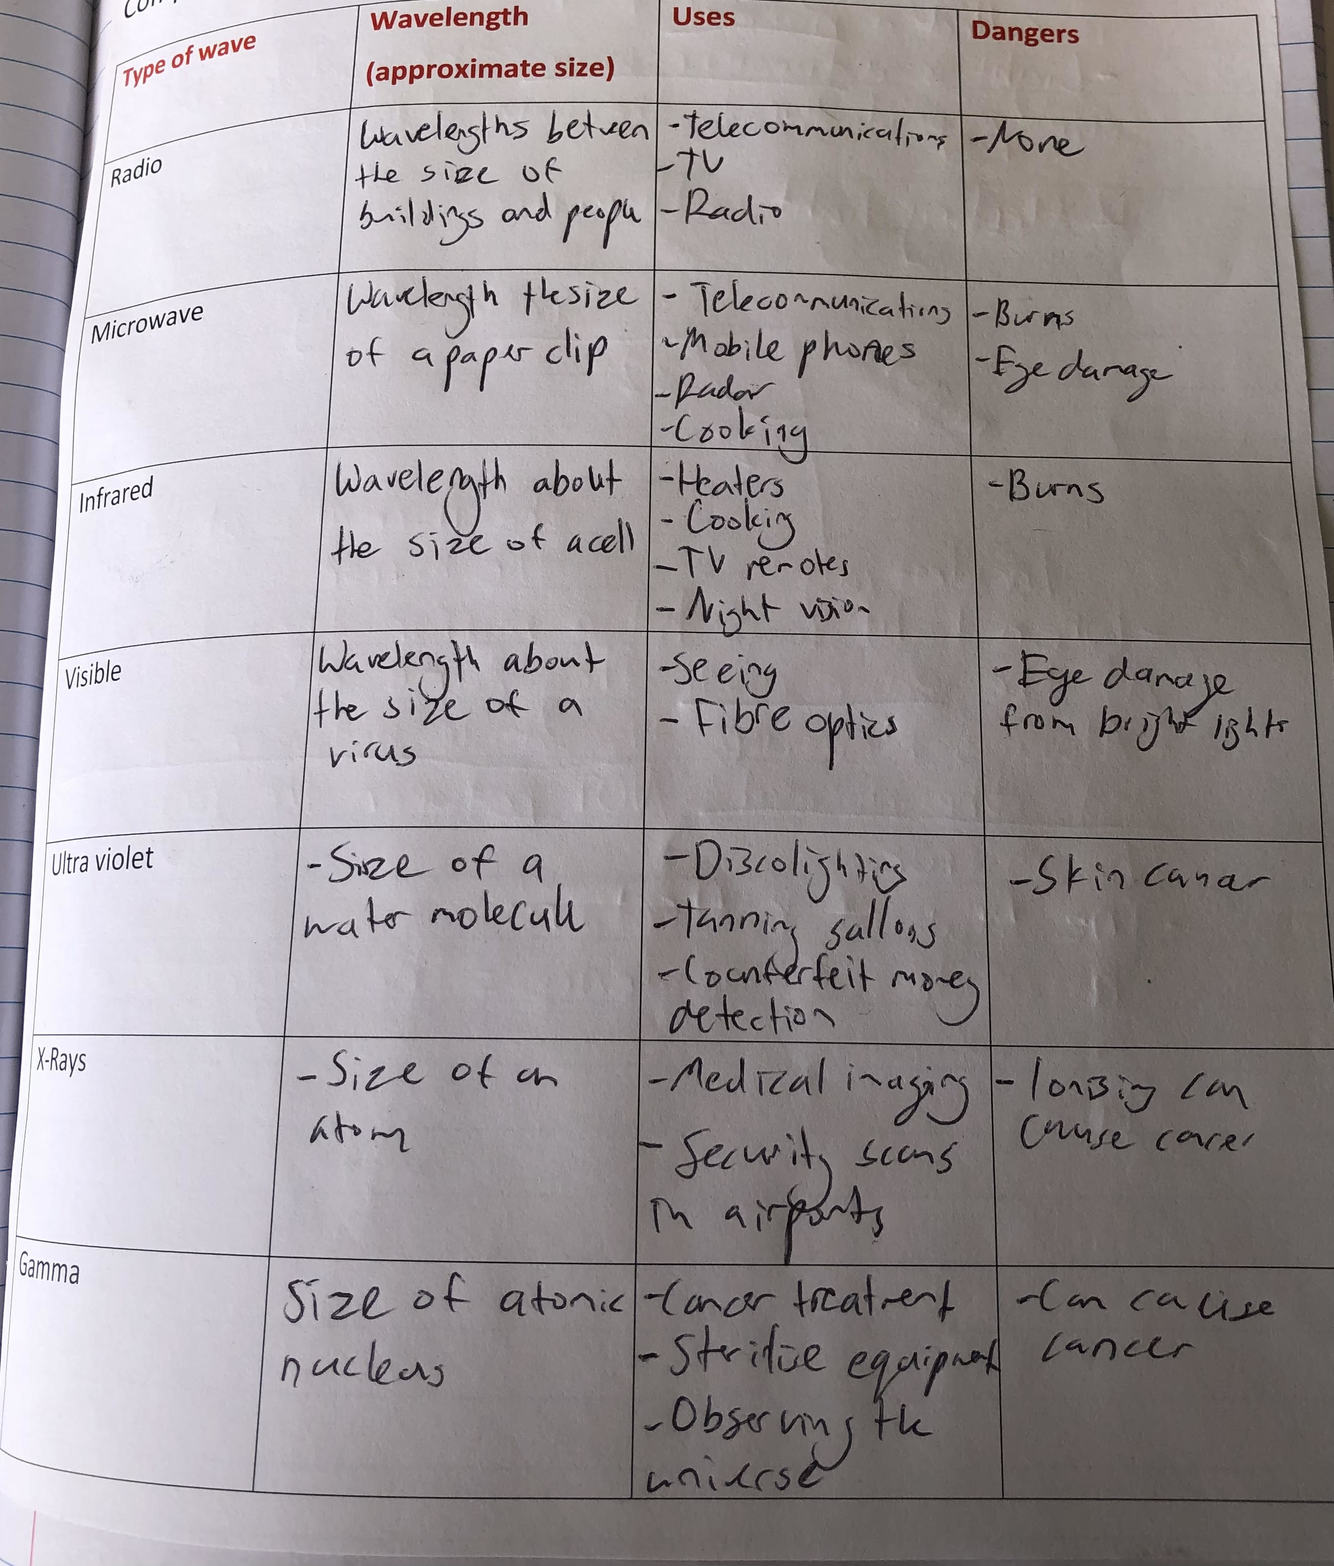 Type of wave
Wavelength
(approximate size)
Uses
Dangers
Radio
Wavelengths between
the size of
buildings and people
-Telecommunications
-TV
-Radio
-None
Microwave
Wavelength the size
of a paper clip
- Telecommunications
-Mobile phones
-Radar
-Cooking
-Burns
-Eye damage
Infrared
Wavelength about
the size of a cell
-Heaters
- Cooking
-TV remotes
- Night vision
-Burns
Visible
Wavelength about
the size of a
virus
-Seeing
- Fibre optics
-Eye damage
from bright lights
Ultra violet
-Size of a
water molecule
-Disco lighting
-tanning sallons
-Counterfeit money
detection
-Skin cancer
X-Rays
-Size of an
atom
-Medical imaging
- Security scans
in airports
- Ionising can
cause cancer
Gamma
Size of atomic
nucleus
-Cancer treatment
-Sterilise equipment
-Observing the
universe
-Can cause
cancer